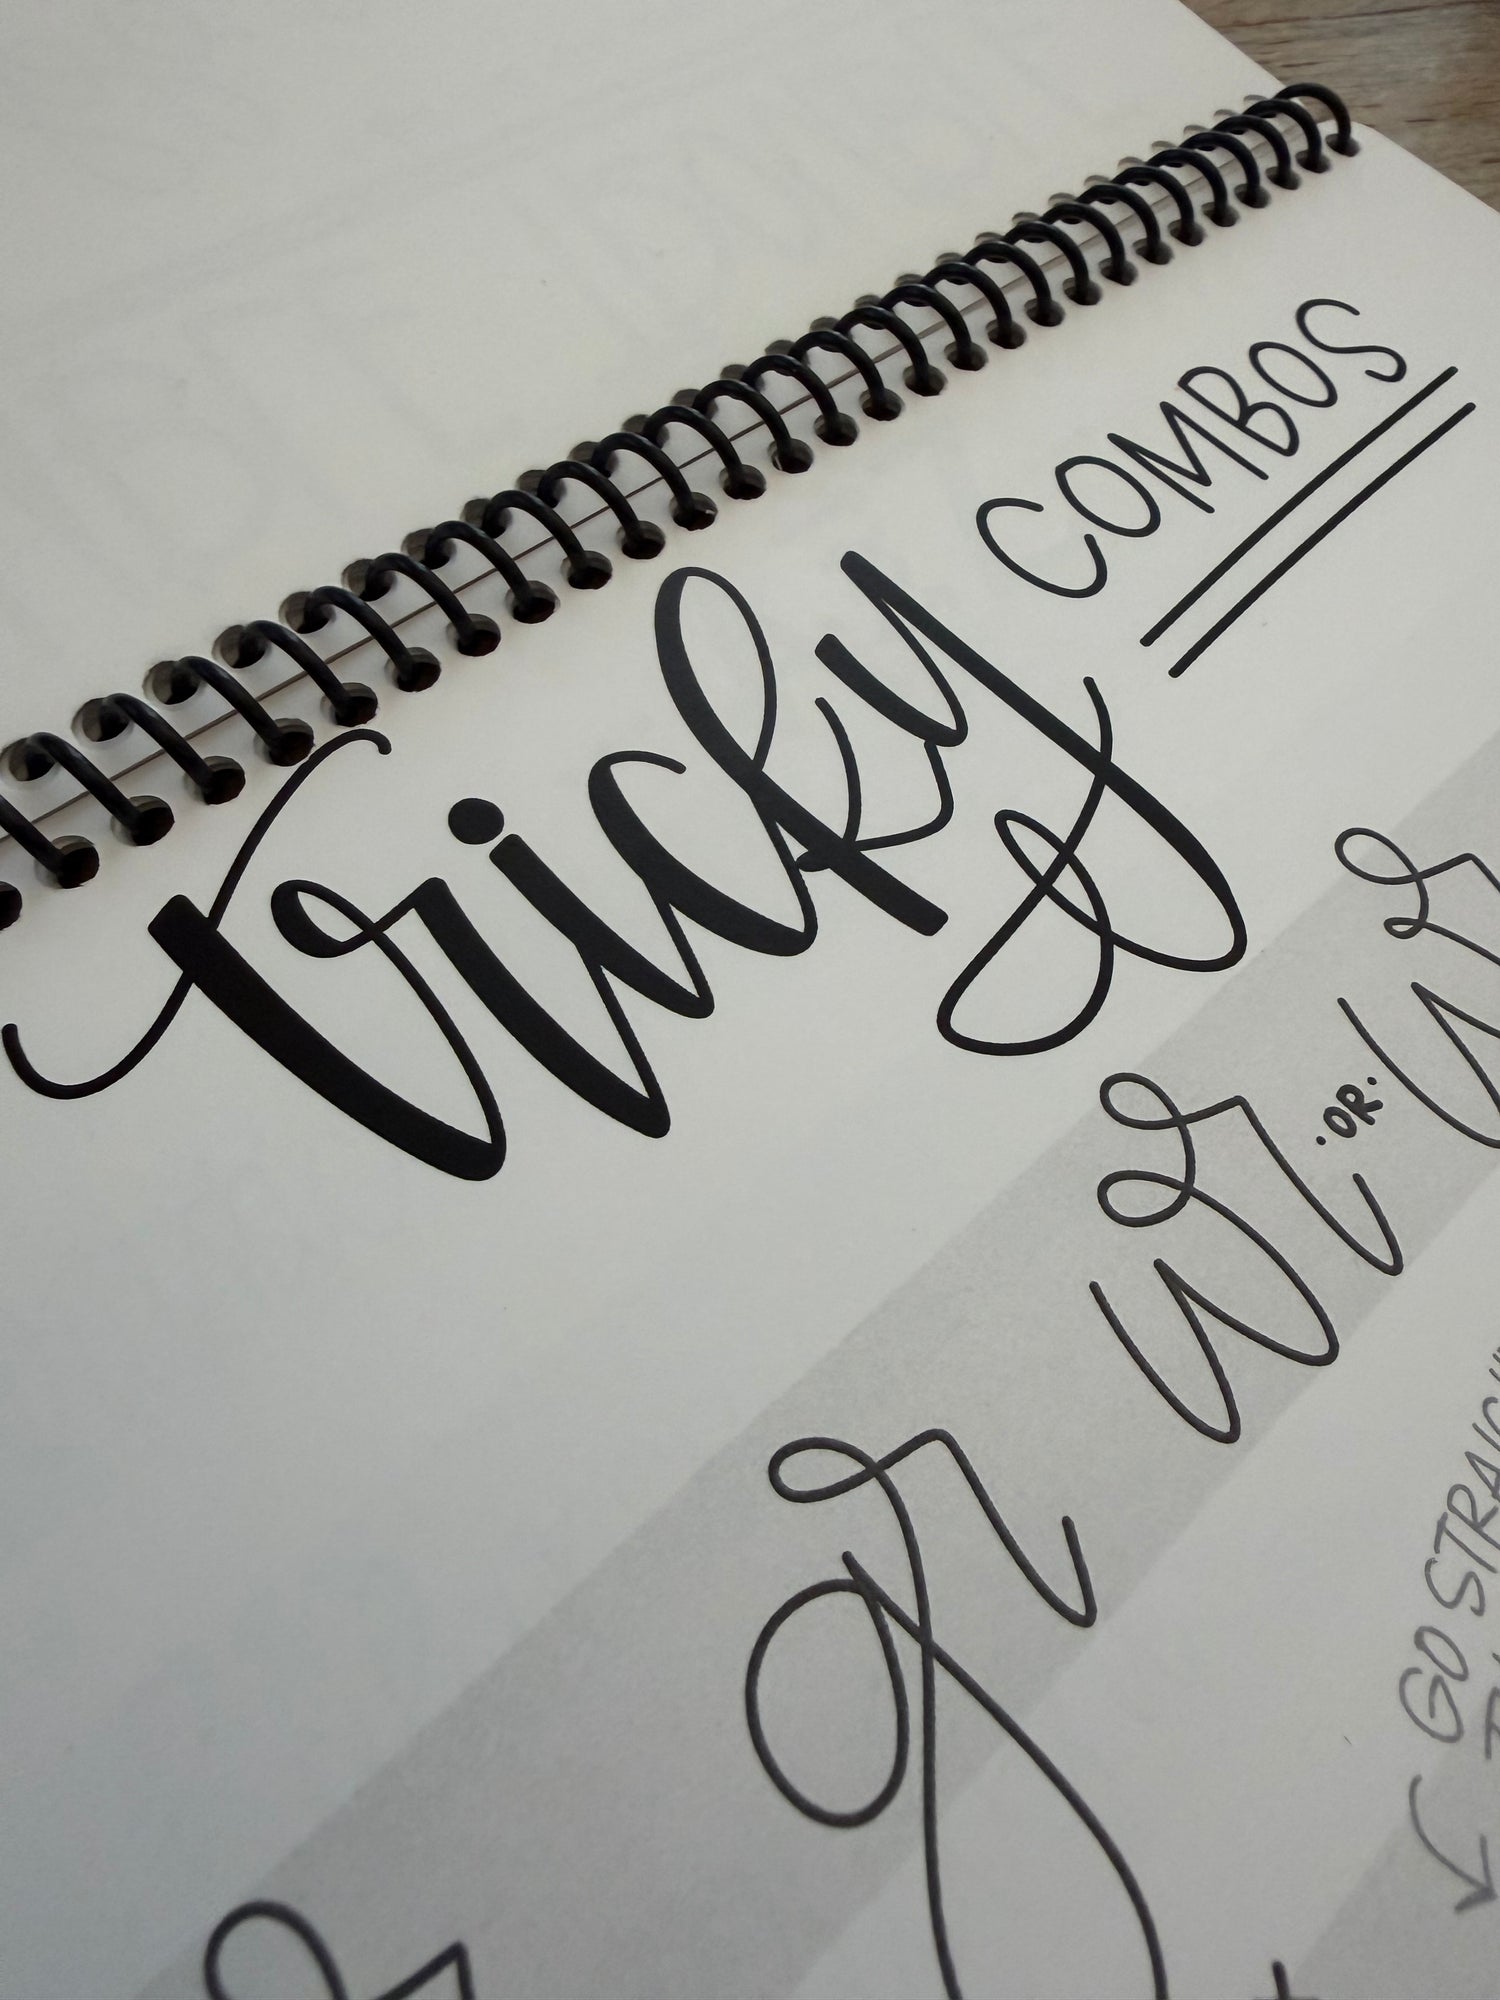 tricky COMBOS
gr wr ·OR· wr
GO STRAIGHT